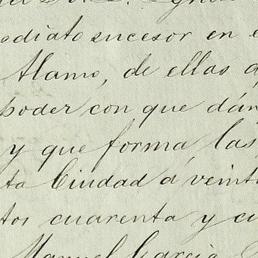 ediato sucesor en e
Alamo, de ellas d
poder con que dán
y que forma, las
ta Ciudad á veinti
tos cuarenta y cu
Manuel Garcia